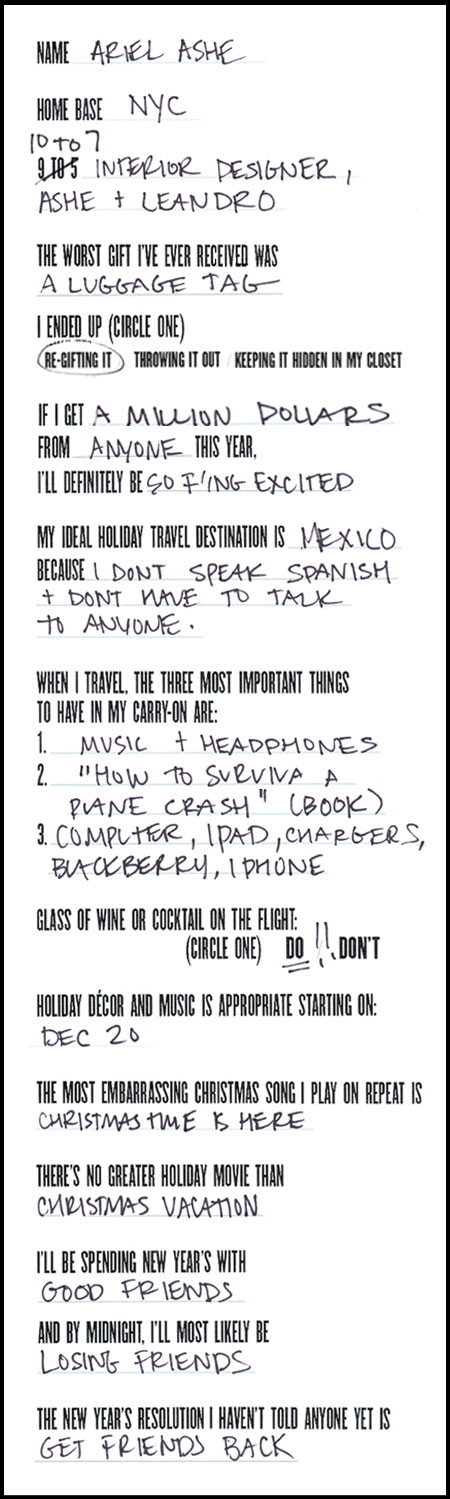 NAME ARIEL ASHE
HOME BASE NYC
10 to 7
9 TO 5 INTERIOR DESIGNER,
ASHE + LEANDRO
THE WORST GIFT I'VE EVER RECEIVED WAS
A LUGGAGE TAG
I ENDED UP (CIRCLE ONE)
RE-GIFTING IT THROWING IT OUT / KEEPING IT HIDDEN IN MY CLOSET
IF I GET A MILLION DOLLARS
FROM ANYONE THIS YEAR,
I'LL DEFINITELY BE SO F'ING EXCITED
MY IDEAL HOLIDAY TRAVEL DESTINATION IS MEXICO
BECAUSE I DONT SPEAK SPANISH
+ DONT HAVE TO TALK
TO ANYONE.
WHEN I TRAVEL, THE THREE MOST IMPORTANT THINGS
TO HAVE IN MY CARRY-ON ARE:
1. MUSIC + HEADPHONES
2. "HOW TO SURVIVA A
PLANE CRASH" (BOOK)
3. COMPUTER, IPAD, CHARGERS,
BLACKBERRY, IPHONE
GLASS OF WINE OR COCKTAIL ON THE FLIGHT:
(CIRCLE ONE) DO !! DON'T
HOLIDAY DÉCOR AND MUSIC IS APPROPRIATE STARTING ON:
DEC 20
THE MOST EMBARRASSING CHRISTMAS SONG I PLAY ON REPEAT IS
CHRISTMAS TIME IS HERE
THERE'S NO GREATER HOLIDAY MOVIE THAN
CHRISTMAS VACATION
I'LL BE SPENDING NEW YEAR'S WITH
GOOD FRIENDS
AND BY MIDNIGHT, I'LL MOST LIKELY BE
LOSING FRIENDS
THE NEW YEAR'S RESOLUTION I HAVEN'T TOLD ANYONE YET IS
GET FRIENDS BACK